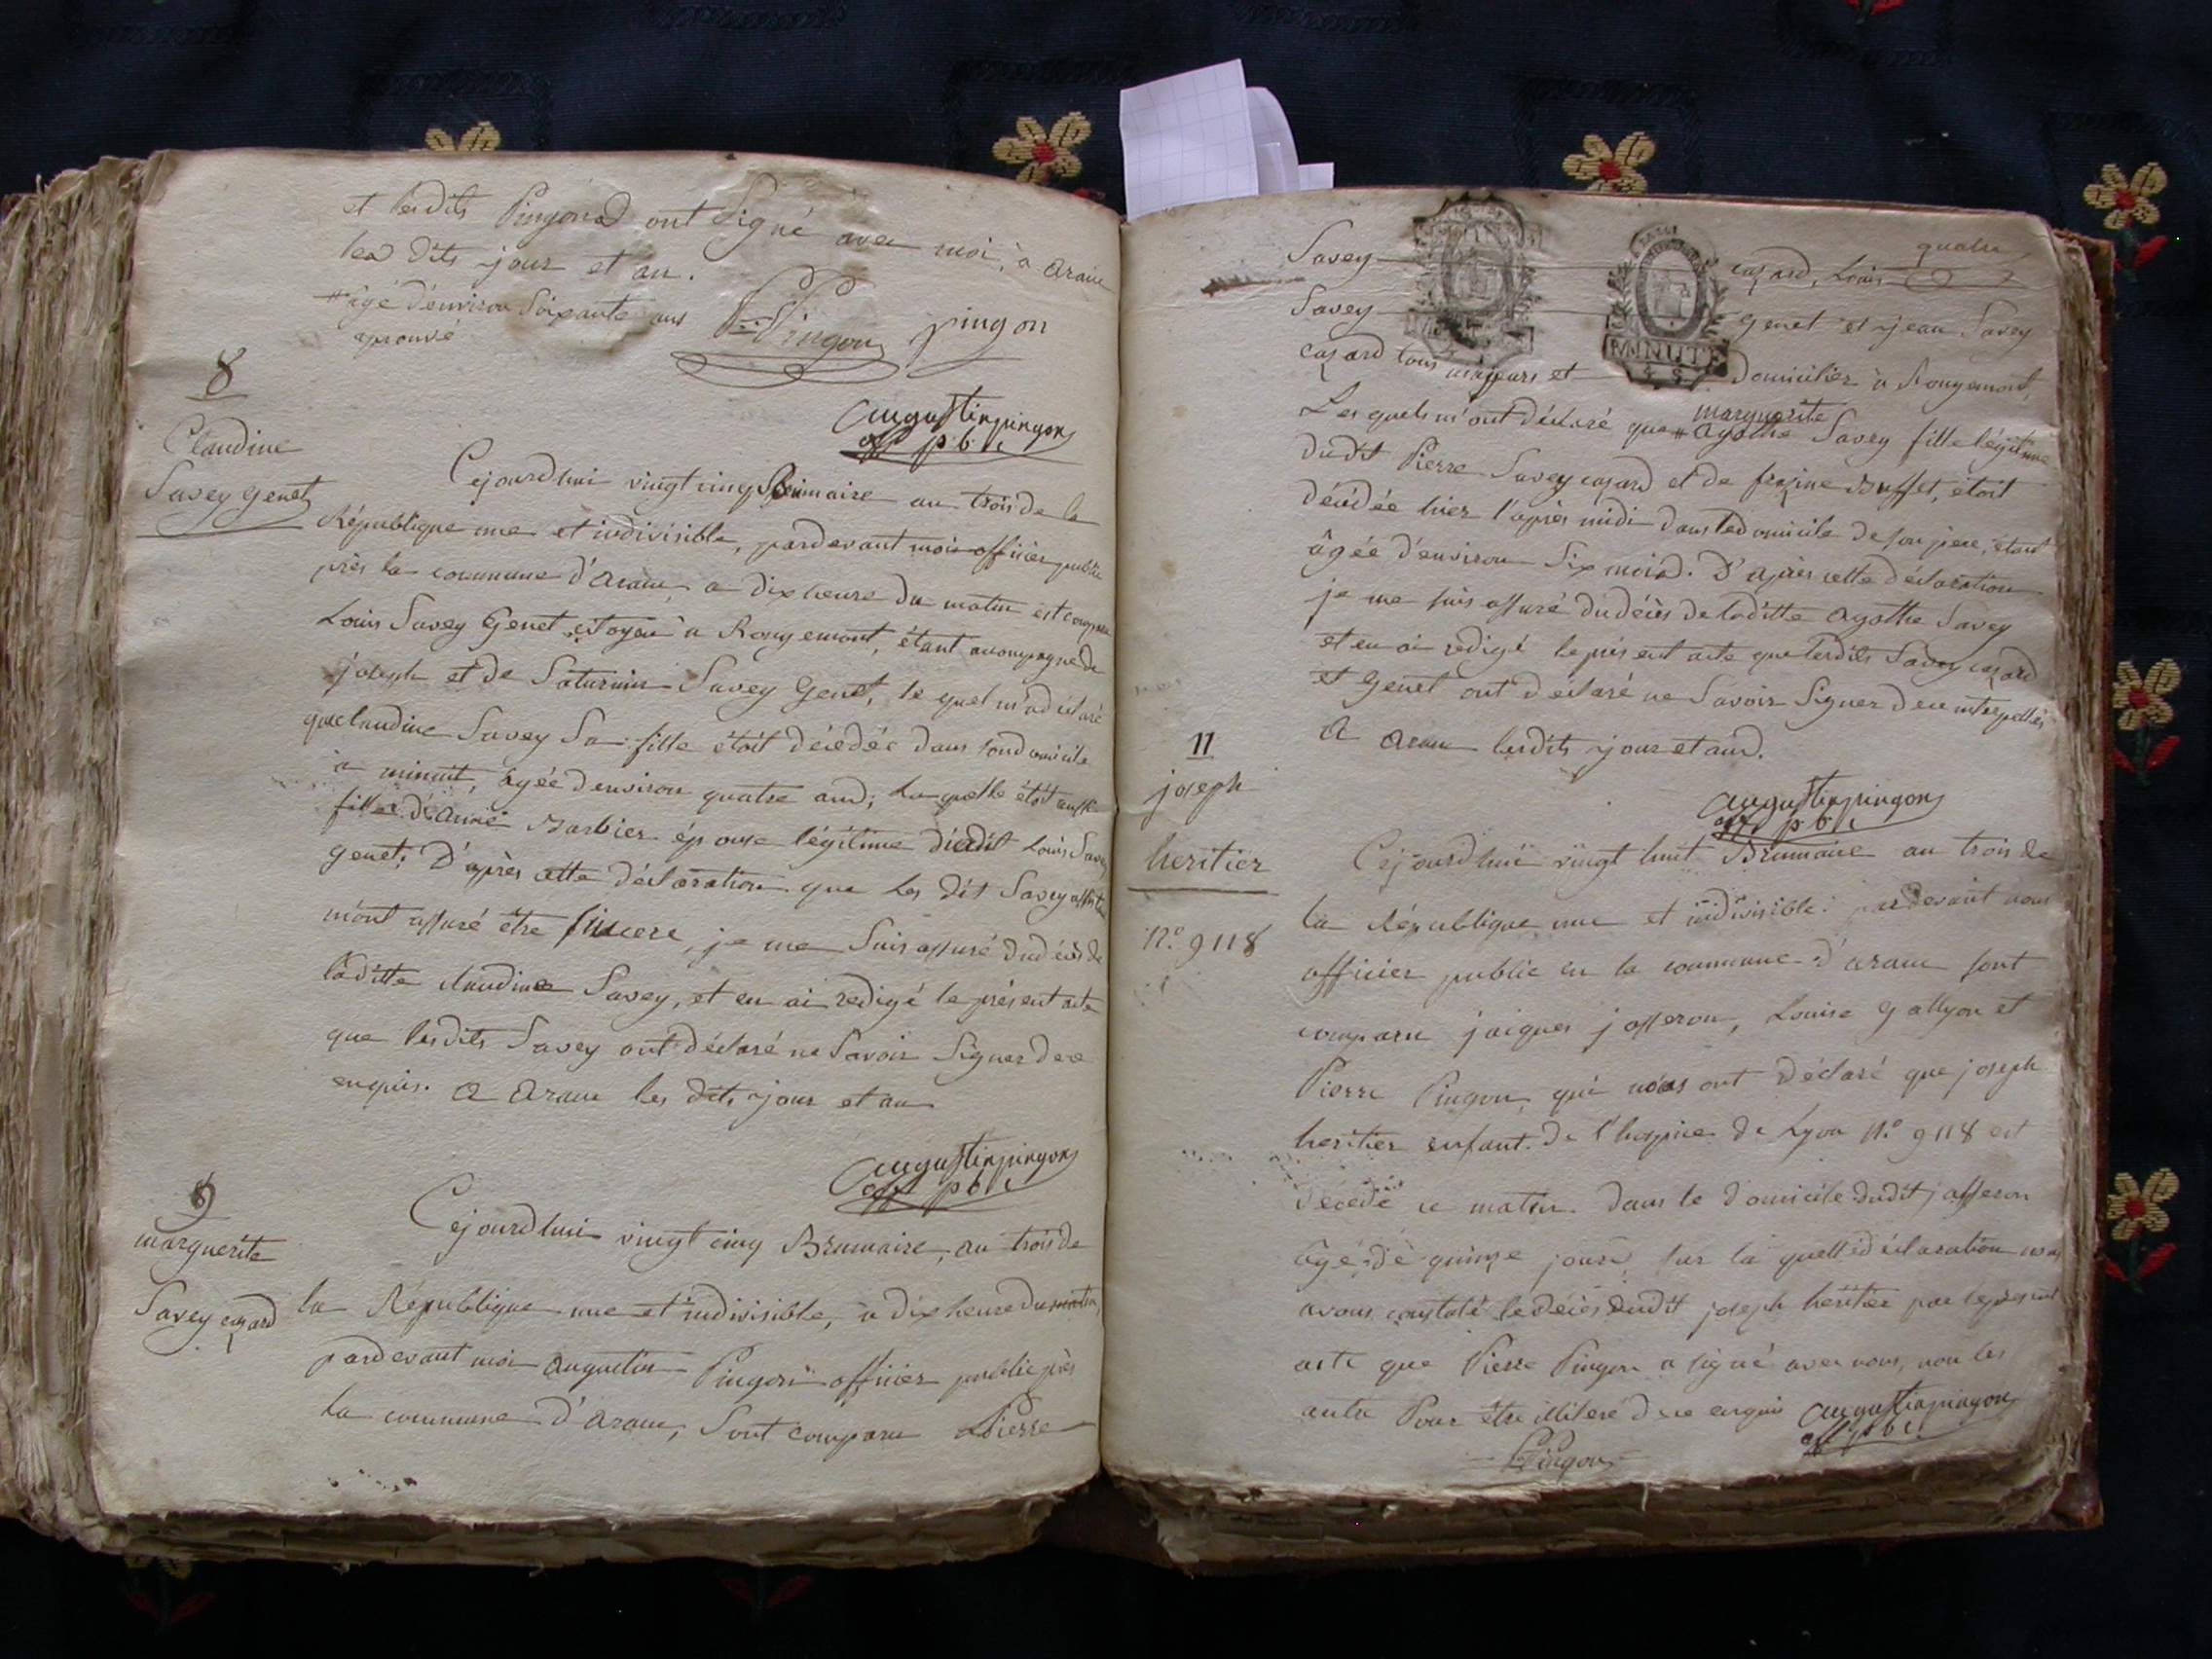 et lesdits Pingond ont Signé avec moi, à aranc
les dits jour et an.
# âgé d'environ Soixante ans
aprouvé
Pre Pingon pingon
augustin pingon
off pbc
8
Claudine
Savey Genet
Cejourdhui vingt cinq Brumaire an trois de la
République une et indivisible, pardevant moi officier public
près la commune d'aranc, a dix heure du matin est comparu
Louis Savey Genet citoyen a Rougemont, étant accompagné de
joseph et de Saturnin Savey Genet, le quel m'a déclaré
que claudine Savey Sa fille étoit décédée dans son domicile
a minuit, agée d'environ quatre and; La quelle étoit aussi
fille d'anne Barbier épouse légitime dudit Louis Savey
genet; D'après cette déclaration que Les dit Savey
m'ont assuré être sincere, je me Suis assuré du décès de
laditte claudine Savey, et en ai redigé le présent acte
que lesdits Savey ont déclaré ne Savoir Signer de ce
enquis. a aranc les dits jour et an
augustin pingon
off pbc
9
marguerite
Savey cazard
Cejourdhui vingt cinq Brumaire, an trois de
la République une et indivisible, a dix heure du matin,
pardevant moi augustin Pingon officier public près
la commune d'aranc, Sont comparu Pierre
quatre
Savey cazard, Louis
Savey genet et jean Savey
cazard tous majeurs et domiciliés à Rougemont,
marguerite
Lesquels m'ont déclaré que # agathe Savey fille légitime
dudit Pierre Savey cazard et de frazine Buffet, étoit
décédée hier l'après midi dans le domicile de son père, étant
âgée d'environ Six moid. D'après cette déclaration
je me suis assuré du décès de laditte agathe Savey
et en ai redigé le présent acte que lesdits Savey cazard
et Genet ont déclaré ne Savoir Signer de ce interpellés
A aranc lesdits jour et and.
augustin pingon
off pbc
11
joseph
heritier
N.° 9118
Cejourd'huï vingt huit Brumaire an trois de
la République une et indivisible; pardevant nous
officier public en la commune d'aranc sont
comparu jaiques josseron, Louise gallyon et
Pierre Pingon, qui nous ont déclaré que joseph
heritier enfant de l'hospice de Lyon N.° 9118 est
décédé ce matin dans le domicile dudit josseron
agé de quinze jours, sur la quelle déclaration nous
avons constaté le décès dudit joseph heritier par le présent
acte que Pierre Pingon a signé avec nous, non les
autre Pour être illiteré de ce enquis augustin pingon
off pbc
P Pingon
MINUTE